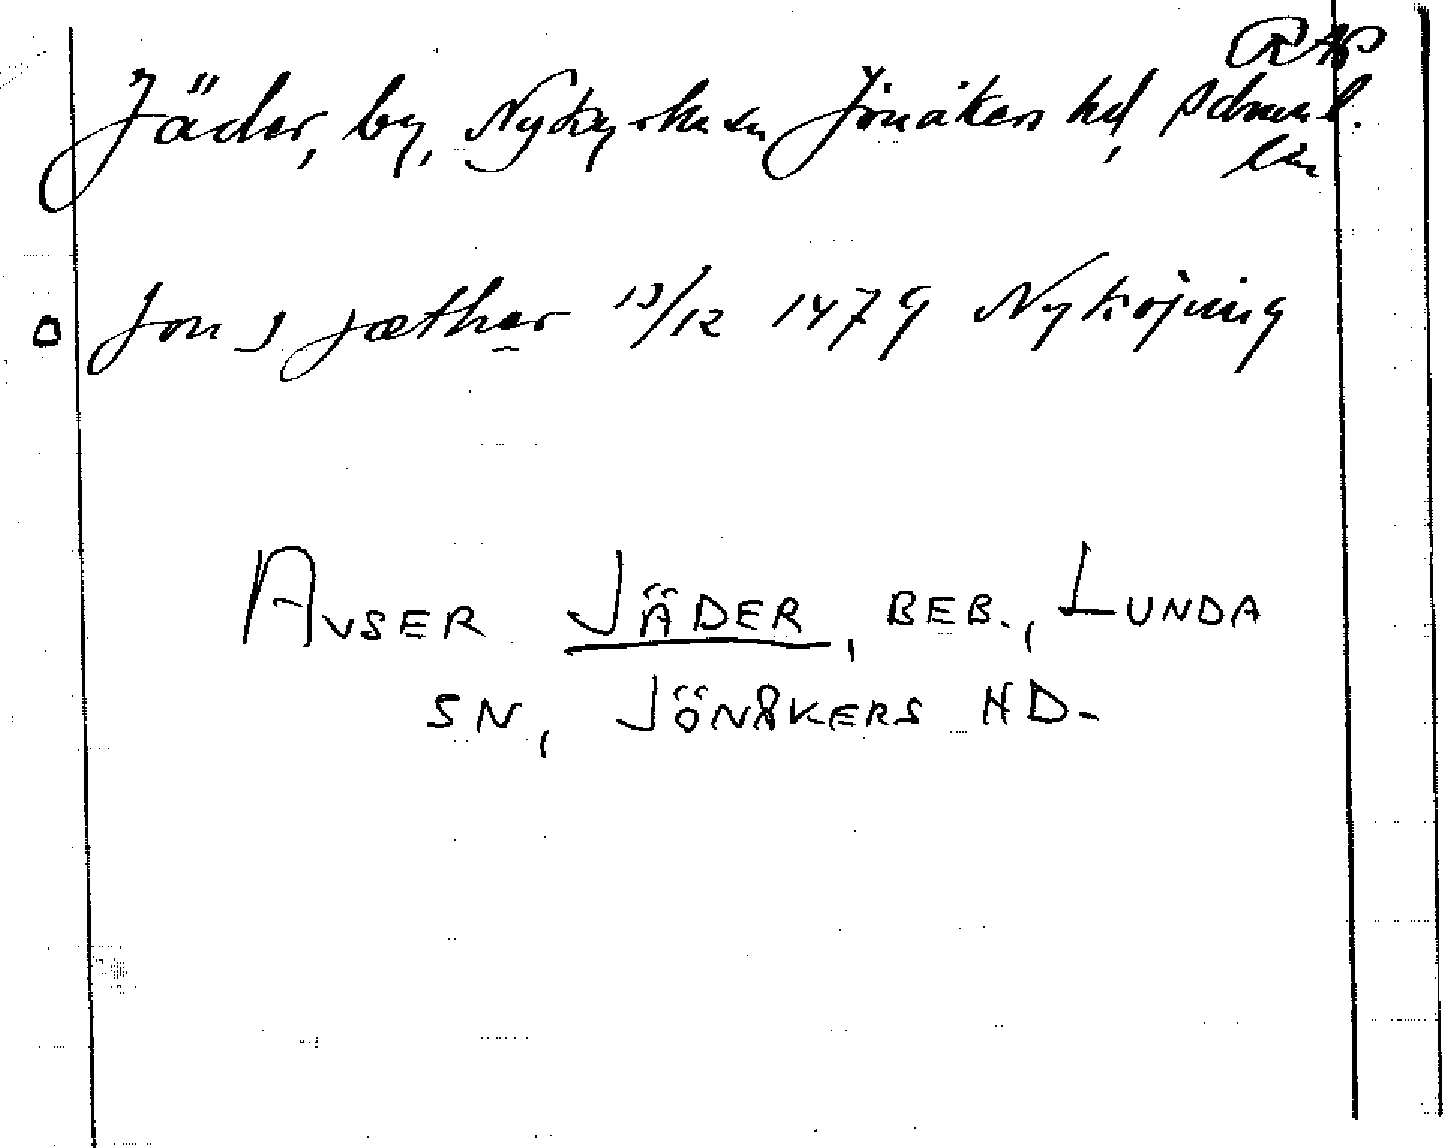 RAP
Jäder, by, Nykyrka sn Jönåkers hd, Södermanl.
län
Jon J jæther 13/12 1479 Nyköping
AVSER JÄDER, BEB., LUNDA
SN, JÖNÅKERS HD.